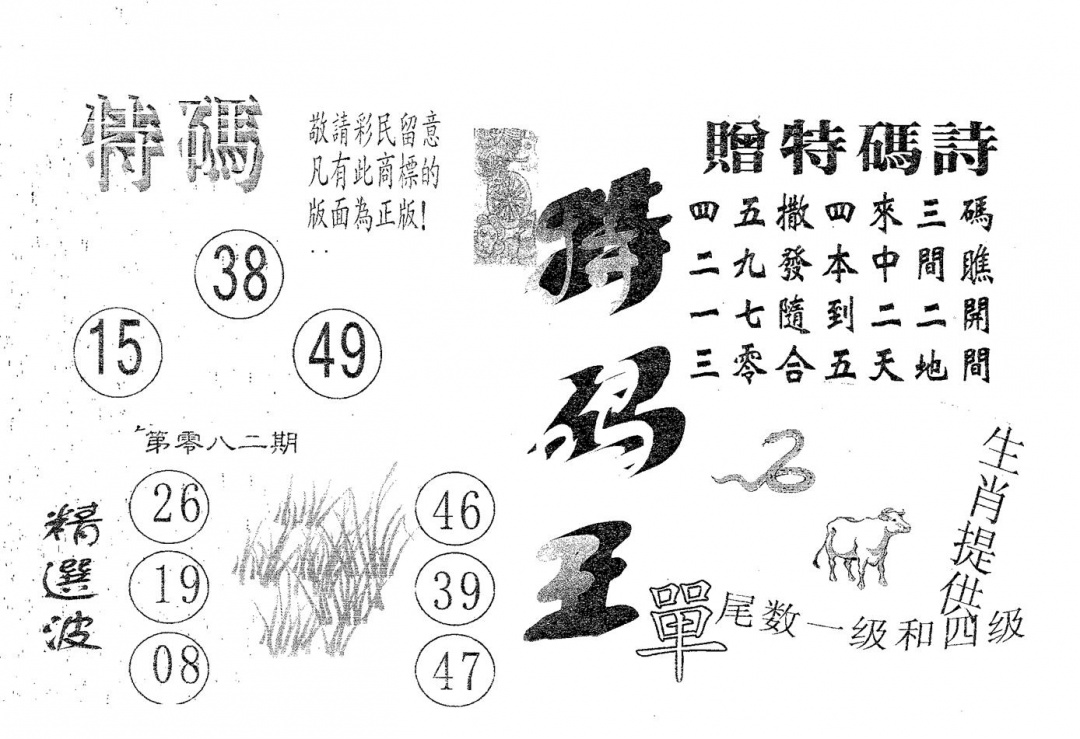 特碼
敬請彩民留意
凡有此商標的
版面為正版!
38
15
49
第零八二期
精選波
26
19
08
46
39
47
特码王
贈特碼詩
四五撒四來三碼
二九發本中間瞧
一七隨到二二開
三零合五天地間
生肖提供
單尾数一级和四级